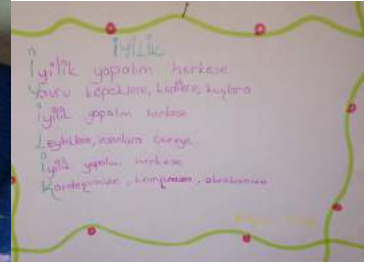 İYİLİK
İyilik yapalım herkese
Yavru köpeklere, kedilere, kuşlara
İyilik yapalım herkese
Leyleklere,
İyilik yapalım herkese
Kardeşimize, komşumuza, akrabamıza